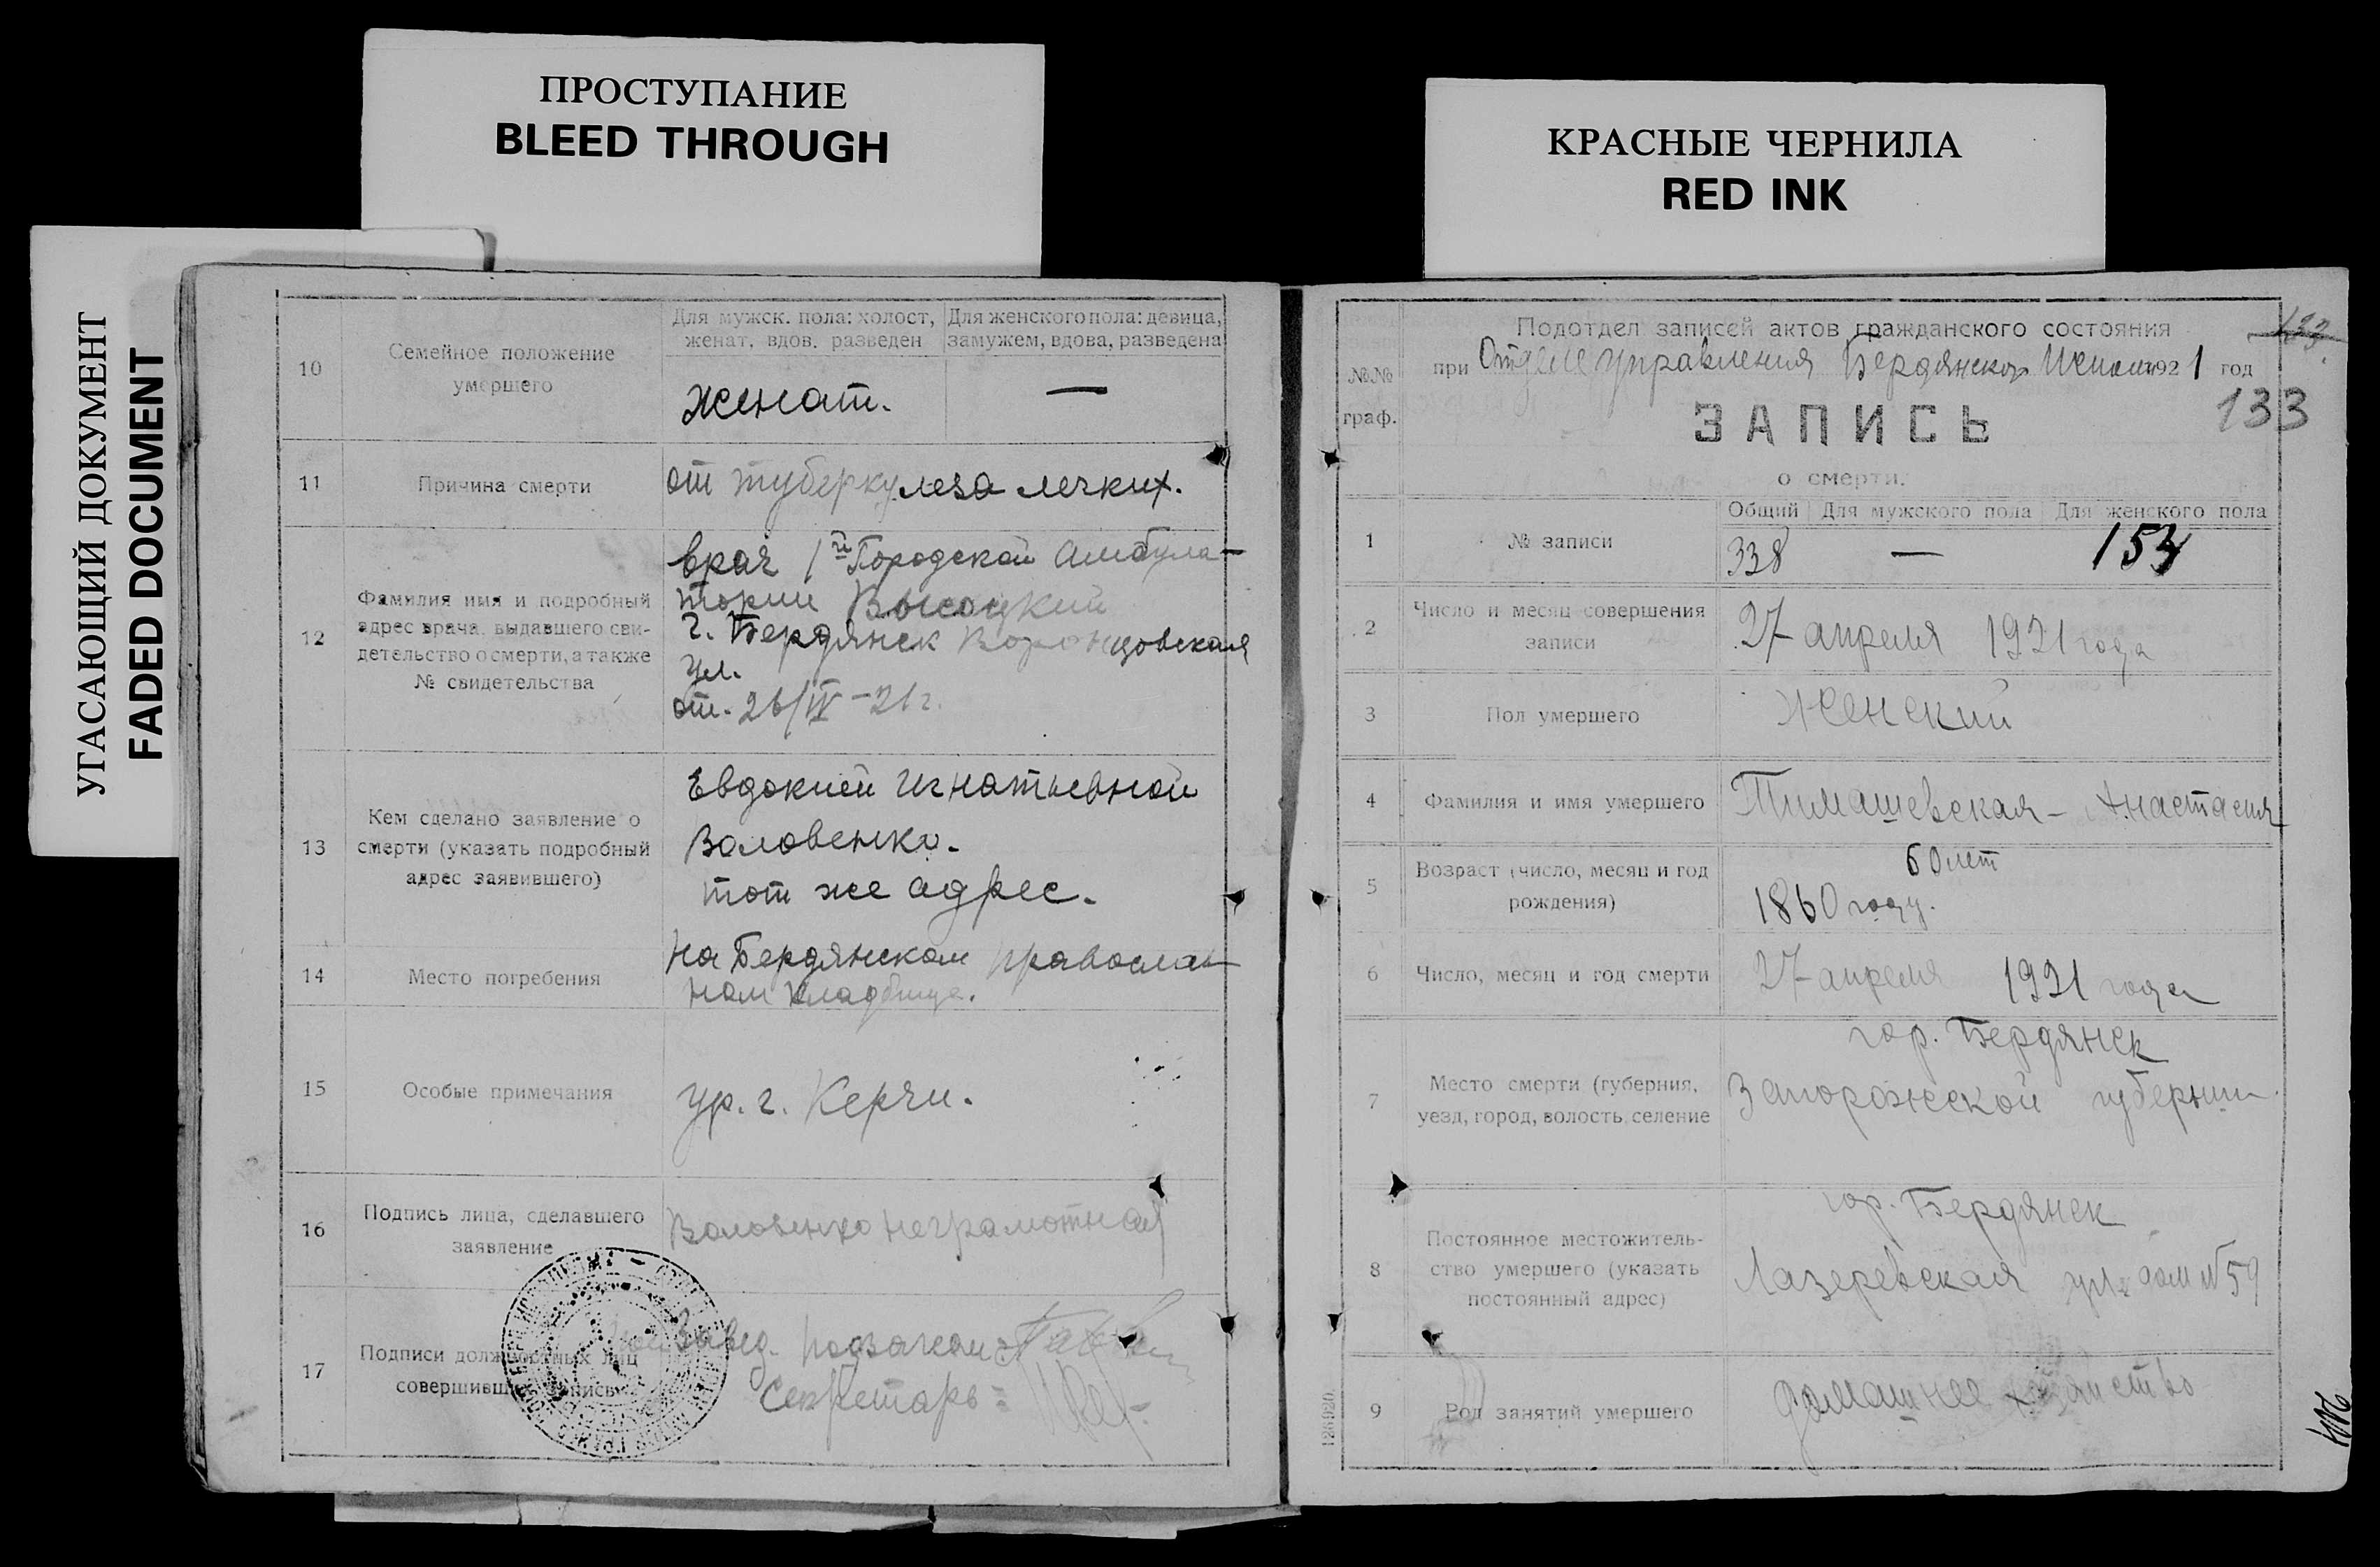 ПРОСТУПАНИЕ
BLEED THROUGH
КРАСНЫЕ ЧЕРНИЛА
RED INK
УГАСАЮЩИЙ ДОКУМЕНТ
FADED DOCUMENT
10
Семейное положение
умершего
Для мужск. пола: холост,
женат, вдов. разведен
Для женского пола: девица,
замужем, вдова, разведена
женат.
—
11
Причина смерти
от туберкулеза легких.
12
Фамилия имя и подробный
адрес врача, выдавшего сви-
детельство о смерти, а также
№ свидетельства
врач 1й Городской Амбула-
тории Высоцкий
г. Бердянск Воронцовская
ул.
от. 26/IV-21 г.
13
Кем сделано заявление о
смерти (указать подробный
адрес заявившего)
Евдокией Игнатьевной
Воловенко.
тот же адрес.
14
Место погребения
на Бердянском православ-
ном кладбище.
15
Особые примечания
ур. г. Керчи.
16
Подпись лица, сделавшего
заявление
Воловенко неграмотная
17
Подписи должностных лиц
совершивших запись
Завед. подзагсом
Секретарь =
№№
граф.
Подотдел записей актов гражданского состояния
при Отделе управления Бердянског 192 1 год
133
133
ЗАПИСЬ
о смерти.
1
№ записи
Общий Для мужского пола Для женского пола
338 — 154
2
Число и месяц совершения
записи
27 апреля 1921 года
3
Пол умершего
Женский
4
Фамилия и имя умершего
Тимашевская - Анастасия
5
Возраст (число, месяц и год
рождения)
60 лет
1860 году.
6
Число, месяц и год смерти
27 апреля 1921 года
7
Место смерти (губерния,
уезд, город, волость, селение
гор. Бердянск
Запорожской губернии
8
Постоянное местожитель-
ство умершего (указать
постоянный адрес)
гор. Бердянск
Лазеревская ул. дом № 59
9
Род занятий умершего
домашнее хозяйство
1286920